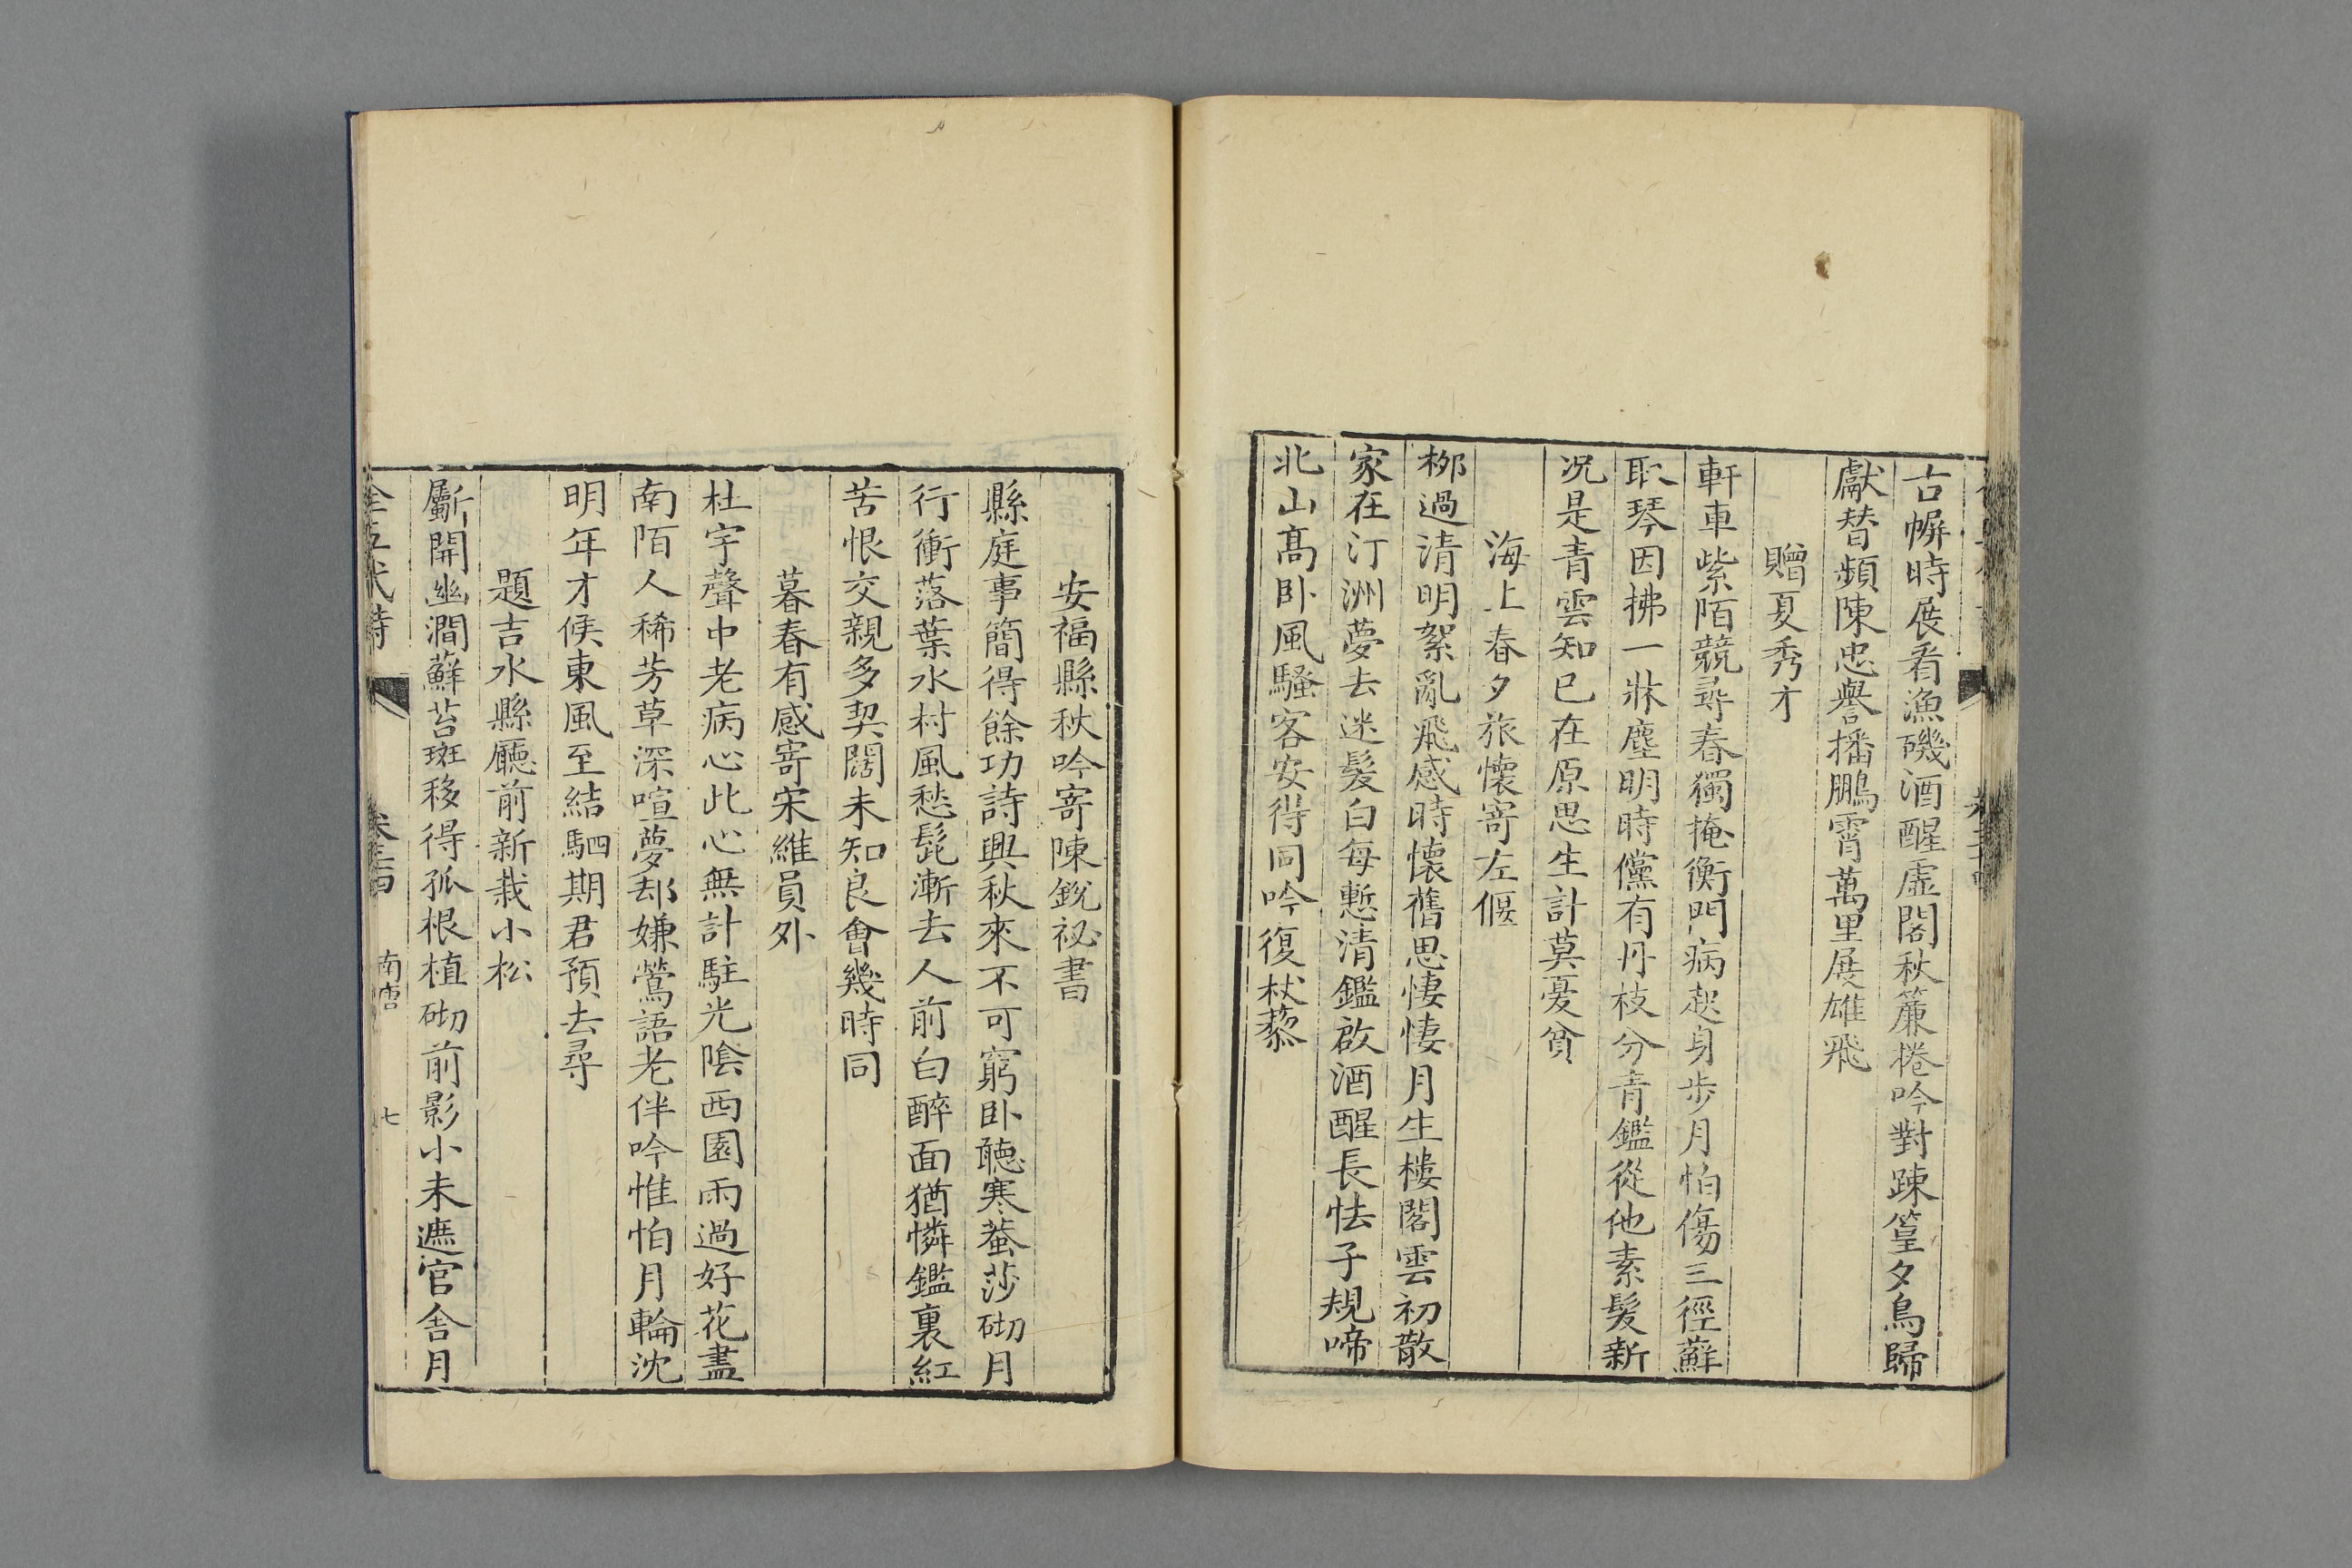 古幈時展看漁磯酒醒虛閣秋簾捲吟對踈篁夕鳥歸
獻替頻陳忠譽播鵬霄萬里展雄飛
贈夏秀才
軒車紫陌競尋春獨掩衡門病起身步月怕傷三徑蘚
取琴因拂一牀塵明時儻有丹枝分青鑑從他素髮新
况是青雲知已在原思生計莫憂貧
海上春夕旅懷寄左偃
栁過清明絮亂飛感時懷舊思悽悽月生樓閣雲初散
家在汀洲夢去迷髮白每慙清鑑啟酒醒長怯子規啼
北山髙卧風騷客安得同吟復杖藜
安福縣秋吟寄陳銳祕書
縣庭事簡得餘功詩興秋來不可窮卧聽寒蛩莎砌月
行衝落葉水村風愁髭漸去人前白醉面猶憐鑑裏紅
苦恨交親多契闊未知良會幾時同
暮春有感寄宋維員外
杜宇聲中老病心此心無計駐光陰西園雨過好花盡
南陌人稀芳草深喧夢却嫌鶯語老伴吟惟怕月輪沈
明年才候東風至結駟期君預去尋
題吉水縣廳前新栽小松
斸開幽澗蘚苔斑移得孤根植砌前影小未遮官舍月
全五代詩
南唐
七